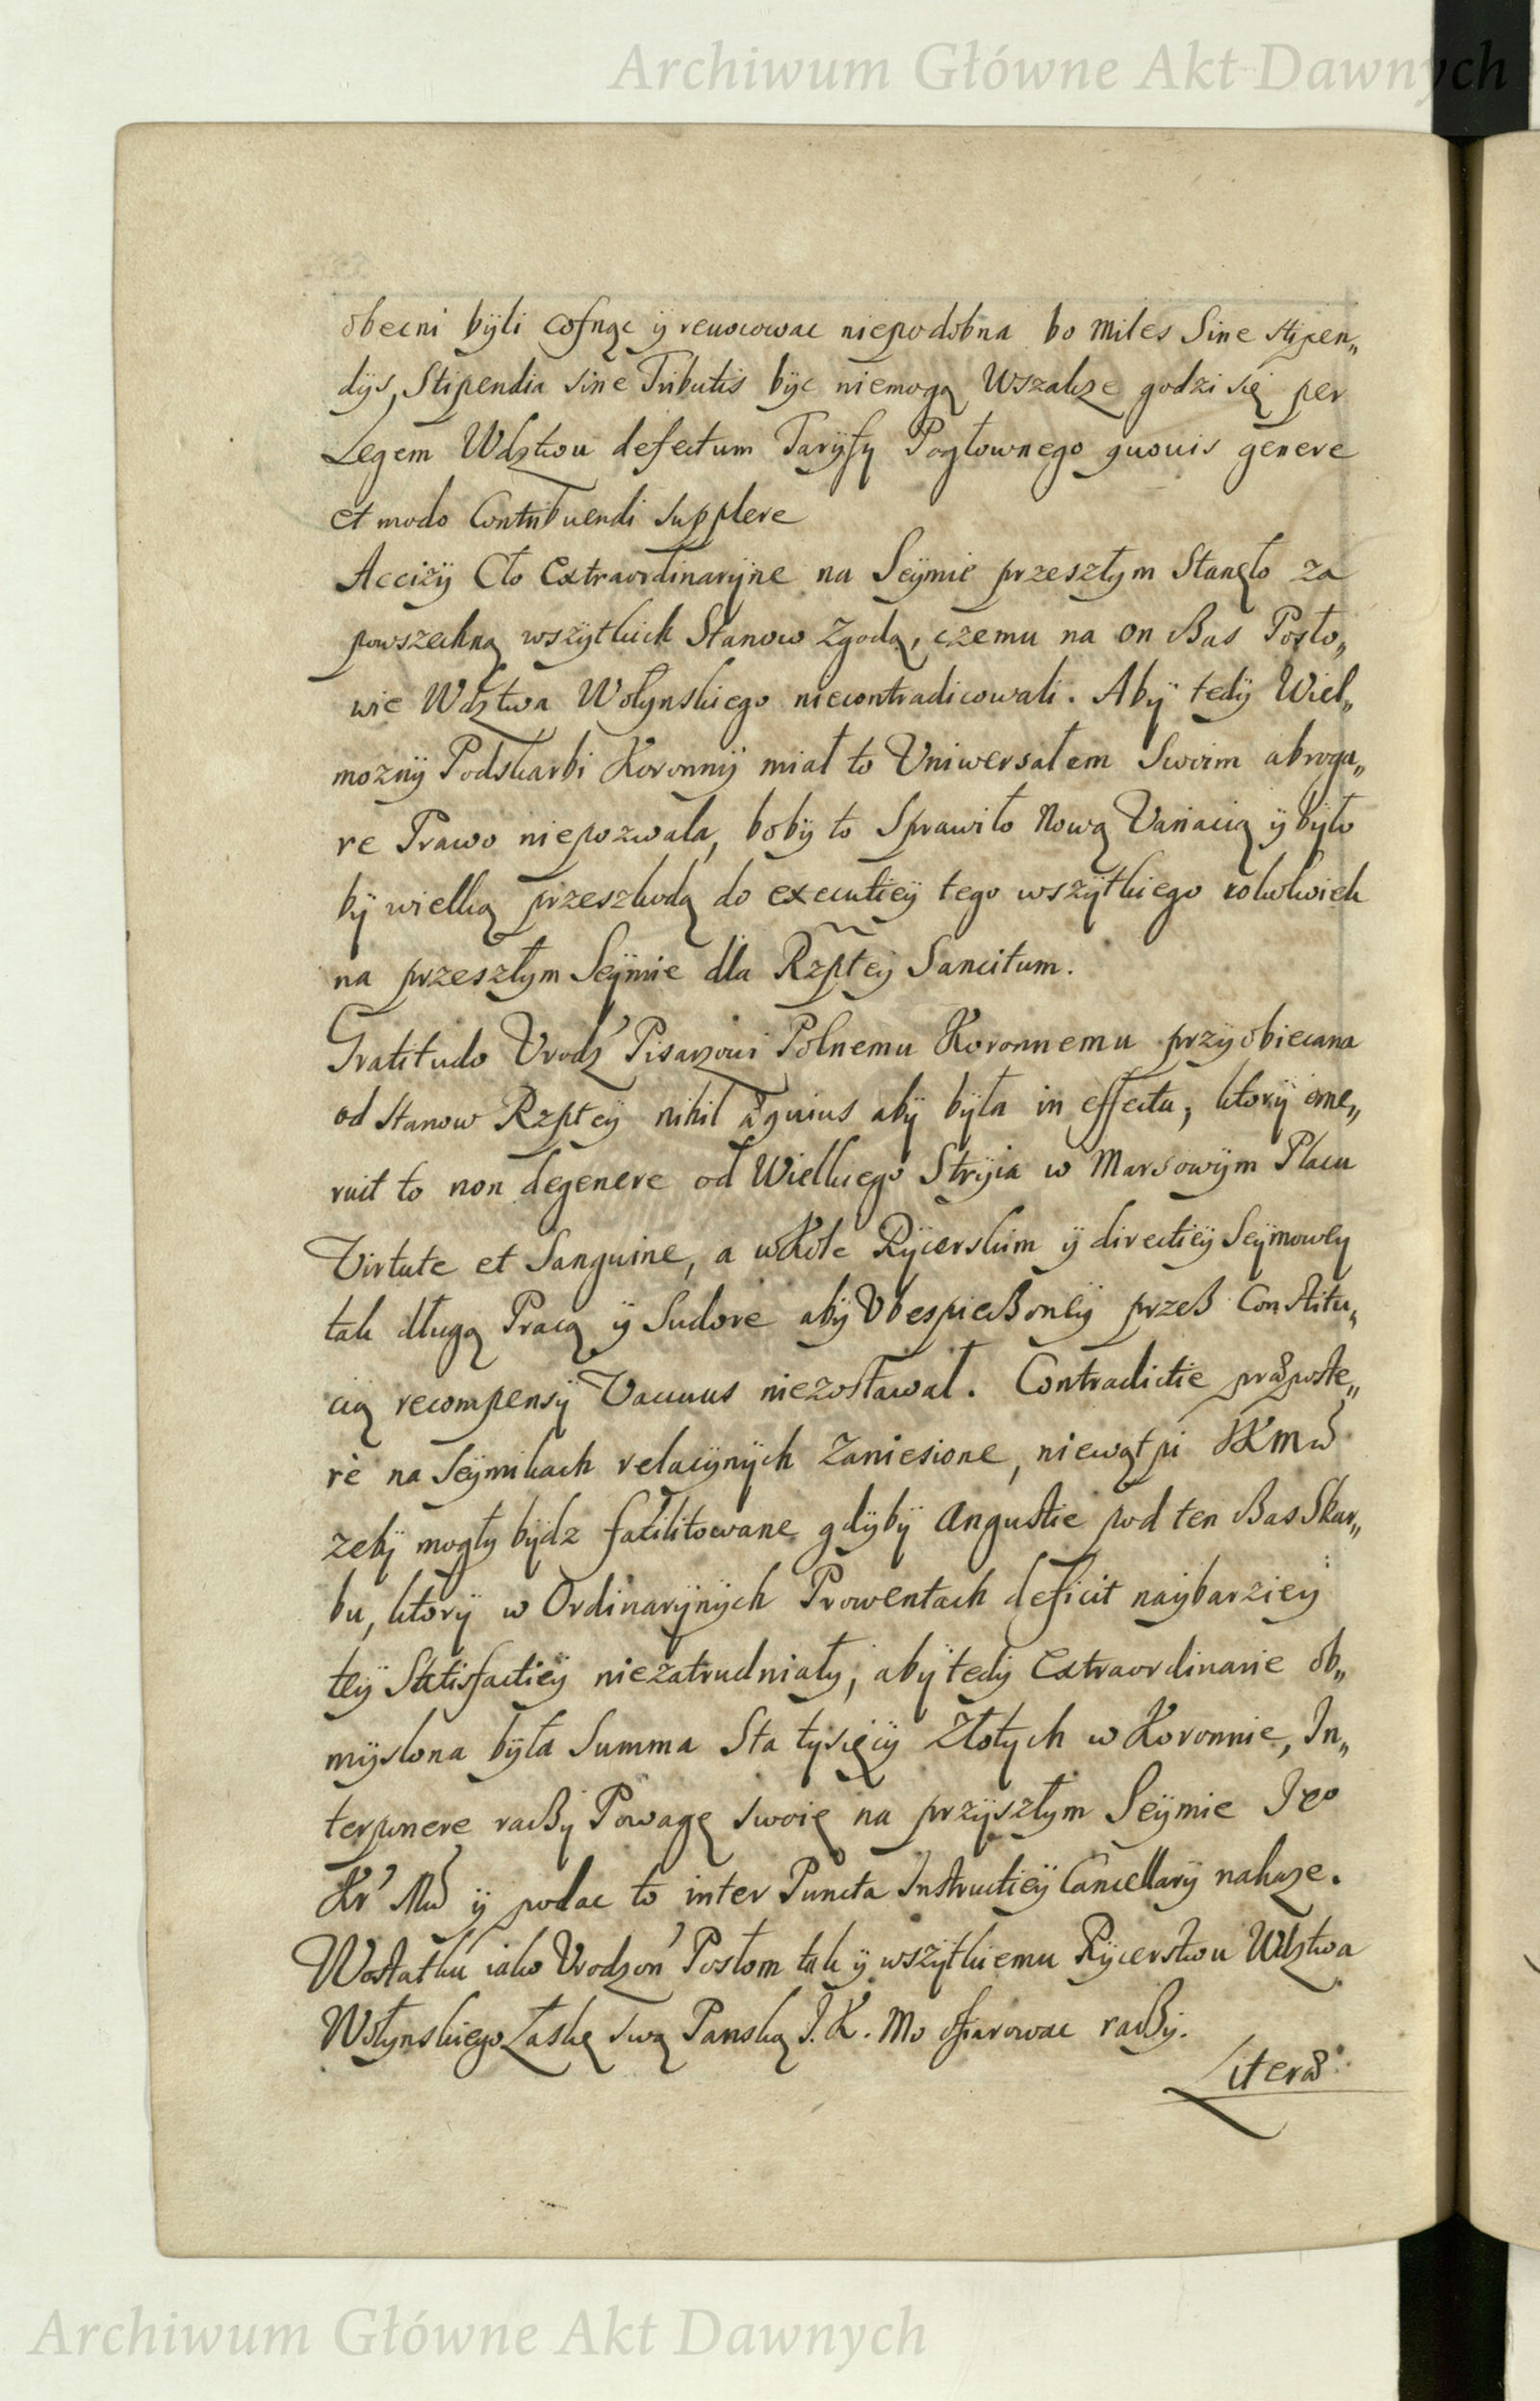 Archiwum Główne Akt Dawnych
obecni byli cofnąc ÿ reuocowac niepodobna bo miles Sine stipen„
dÿs, Stipendia sine Tributis bÿc niemogą Wszakze godzi się per
Legem Wdztwu defectum Tarÿfy Pogłownego quouis genere
et modo Contribuendi supplere
Acciżÿ Cło Extraordinarÿne na Seÿmie przeszłym Stanęło za
powszechną wszÿtkich Stanow Zgodą, czemu na on ßas Posło„
wie Wdztwa Wołynskiego niecontradicowali. Abÿ tedÿ Wiel„
moznÿ Podskarbi Koronnÿ miał to Vniwersałem Swoim abroga„
re Prawo niepozwala, bobÿ to Sprawiło Nową Variacią ÿ bÿło
bÿ wielką przeszkodą do executieÿ tego wszÿtkiego cokolwiek
na przeszłym Seÿmie dla Rzpteÿ Sancitum.
Gratitudo Vrodz Pisarzowi Polnemu Koronnemu przÿobiecana
od Stanow Rzpteÿ nihil æquius abÿ bÿła in effectu, ktorÿ eme„
ruit to non degenere od Wielkiego Strÿia w Marsowÿm Placu
Virtute et Sanguine, a w Kole Rÿcerskim ÿ directieÿ Seÿmoweÿ
tak długą Pracą ÿ Sudore abÿ Vbespießoneÿ przeß Constitu„
cią recompensÿ Vacuus niezostawał. Contradictie præposte„
re na Seÿmikach relacÿnÿch Zaniesione, niewątpi JKmć
zebÿ mogłÿ bÿdz facilitowane gdÿbÿ Angustie pod ten ßas Skar„
bu, ktorÿ w Ordinarÿnÿch Prowentach deficit naÿbarzieÿ
teÿ Satisfactieÿ niezatrudniałÿ, abÿ tedÿ Extraordinarie ob„
mÿslona bÿła Summa Sta tysięcÿ Złotych w Koronnie, In„
terponere raczÿ Powagę swoię na przÿszłym Seÿmie Jeo
Kr Mć ÿ podac to inter Puncta Instructieÿ Cancellarÿ nakaze.
Wostatku iako Vrodzon Posłom tak ÿ wszÿtkiemu Rÿcerstwu Wdztwa
Wołynskiego Łaskę swą Panską J. K. Mo ofiarowac raczÿ.
Literæ
Archiwum Główne Akt Dawnych